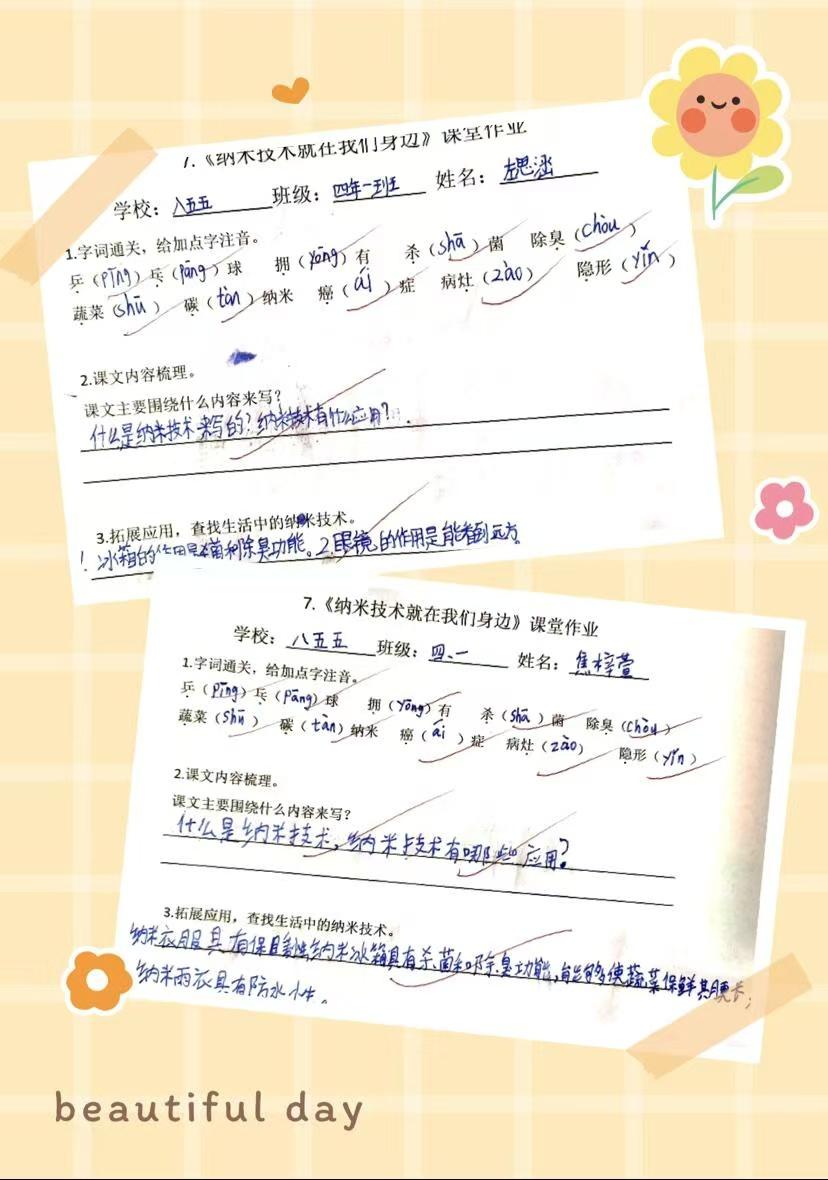 7.《纳米技术就在我们身边》课堂作业
学校：八五五 班级：四年一班 姓名：
1.字词通关，给加点字注音。
乒（pīng）乓（pāng）球 拥（yōng）有 杀（shā）菌 除臭（chòu）
蔬菜（shū） 碳（tàn）纳米 癌（ái）症 病灶（zào） 隐形（yǐn）
2.课文内容梳理。
课文主要围绕什么内容来写？
什么是纳米技术来写的？纳米技术有什么应用？
3.拓展应用，查找生活中的纳米技术。
1.冰箱的作用是杀菌和除臭功能。2.眼镜的作用是能看到远方。
7.《纳米技术就在我们身边》课堂作业
学校：八五五 班级：四、一 姓名：焦梓萱
1.字词通关，给加点字注音。
乒（pīng）乓（pāng）球 拥（yōng）有 杀（shā）菌 除臭（chòu）
蔬菜（shū） 碳（tàn）纳米 癌（ái）症 病灶（zào） 隐形（yǐn）
2.课文内容梳理。
课文主要围绕什么内容来写？
什么是纳米技术，纳米技术有哪些应用？
3.拓展应用，查找生活中的纳米技术。
纳米衣服具有保暖性纳米冰箱具有杀菌和除臭功能，能够使蔬菜保鲜期更长；
纳米雨衣具有防水性。
beautiful day